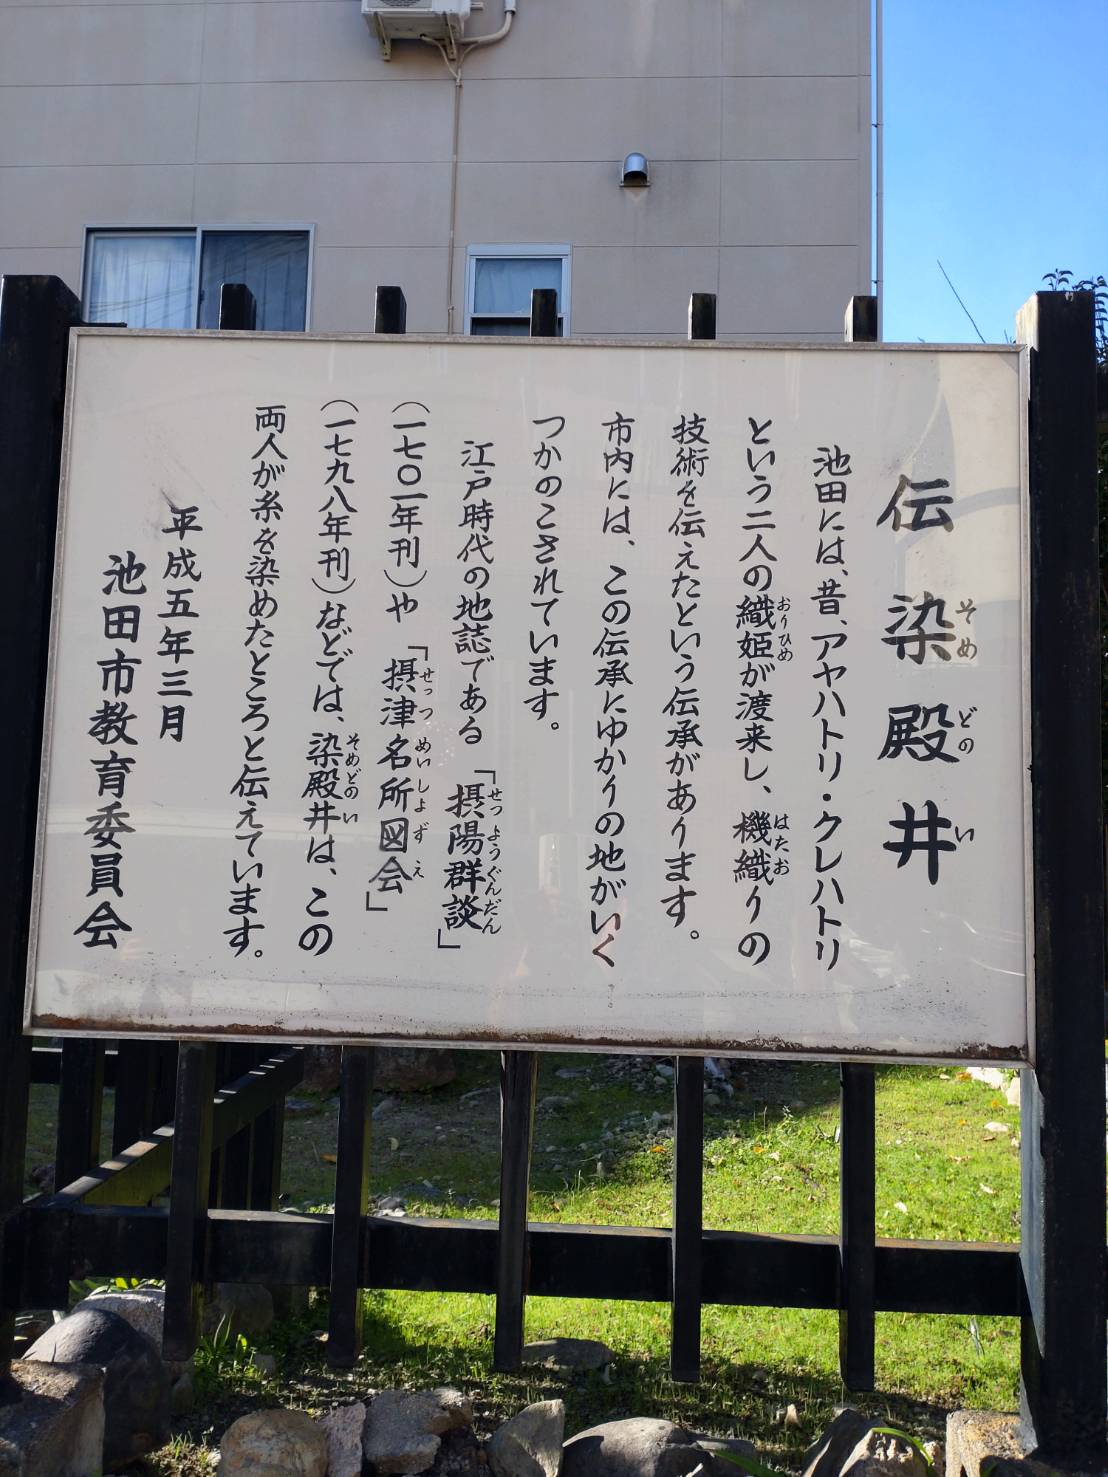 伝染殿井
そめどのい
池田には、昔、アヤハトリ・クレハトリ
という二人の織姫が渡来し、機織りの
おりひめ
はたお
技術を伝えたという伝承があります。
市内には、この伝承にゆかりの地がいく
つかのこされています。
江戸時代の地誌である「摂陽群談」
せつようぐんだん
(一七〇一年刊)や「摂津名所図会」
せっつめいしょずえ
(一七九八年刊)などでは、染殿井は、この
そめどのい
両人が糸を染めたところと伝えています。
平成五年三月
池田市教育委員会